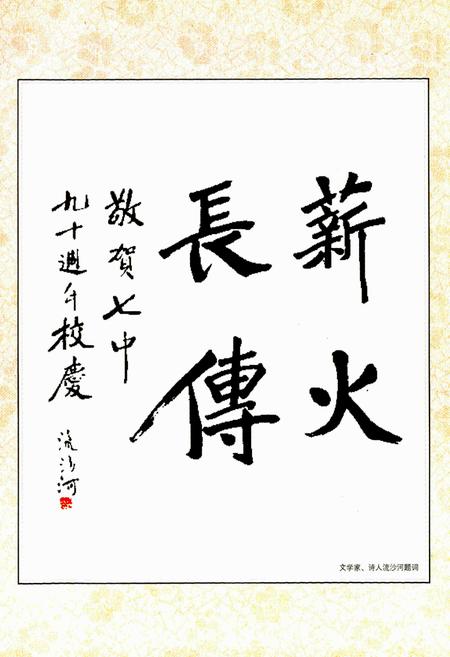 薪火
長傳
敬賀七中
九十週年校慶
流沙河
文学家、诗人流沙河题词